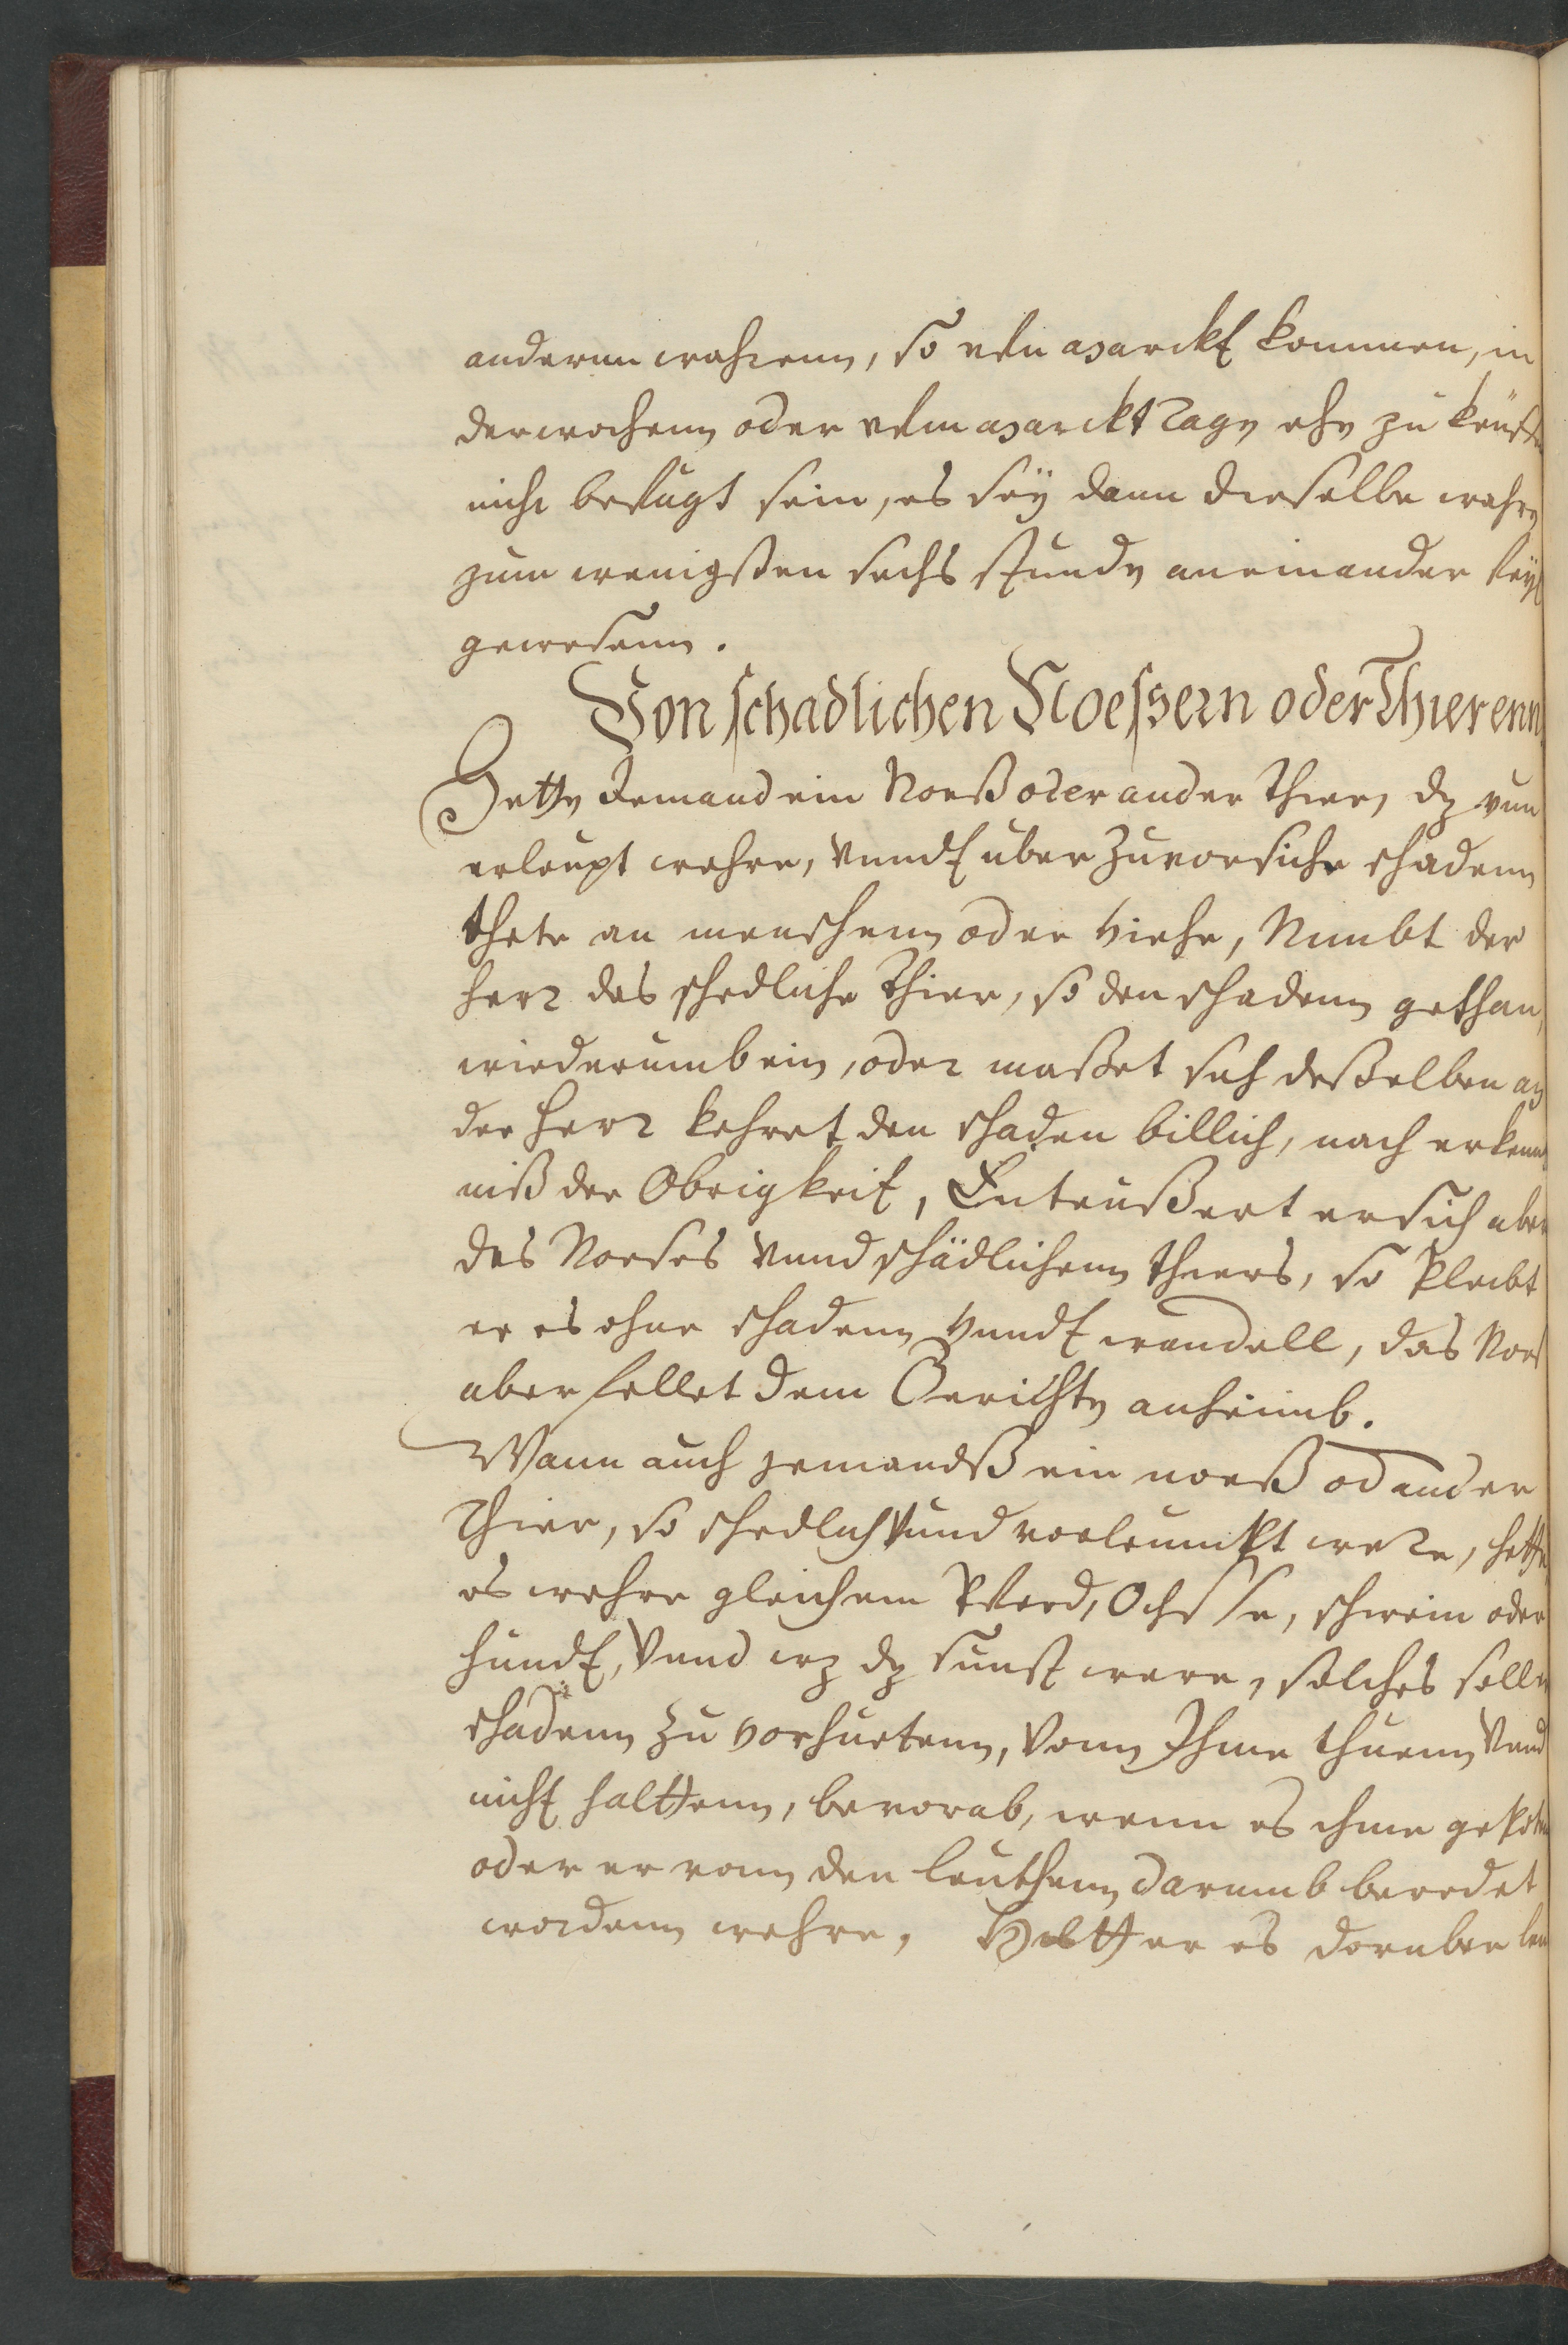 andernn wahrenn, so uffn Marckt kommen, in
der wochenn oder uffm Marckt Tage ehe zu keuffen
nicht befugt sein, es sey dann dieselbe wahre
zum wenigsten sechs stunde an einander feyl
gewesenn.
Von schadlichen Noessern oder Thierenn
Hette Jemand ein Noeß oder ander Thier, dz vun
erleupt wehre, vnndt uber Zuvorsicht schadenn
thete an menschenn oder viehe, Nimbt der
herr das schedliche Thier, so den schadenn gethan,
wiederumb ein, oder maßet sich deßelben an
der herr kehret den schaden billich, nach erkennt
niß der Obrigkeit, Enteußert er sich aber
des Noeses vnnd schädlichenn thiers, so pleibt
er es ohne schadenn vnndt wandell, das Noes
aber fellet dem Gerichte anheimb.
Wann auch jemandß ein noeß od ander
Thier, so schedlich vnnd vorleumbt were, hette
es wehre gleich ein Pferd, Ochsse, schwein oder
hundt, vnnd wz dz sunst were, solches soll er
schadenn zu vorhuetenn, vonn Ihme thuenn vnnd
nicht halttenn, bevorab, wenn es ihme gepoten
oder er vonn den leuthenn darumb beredet
wordenn wehre, Hett er es doruber